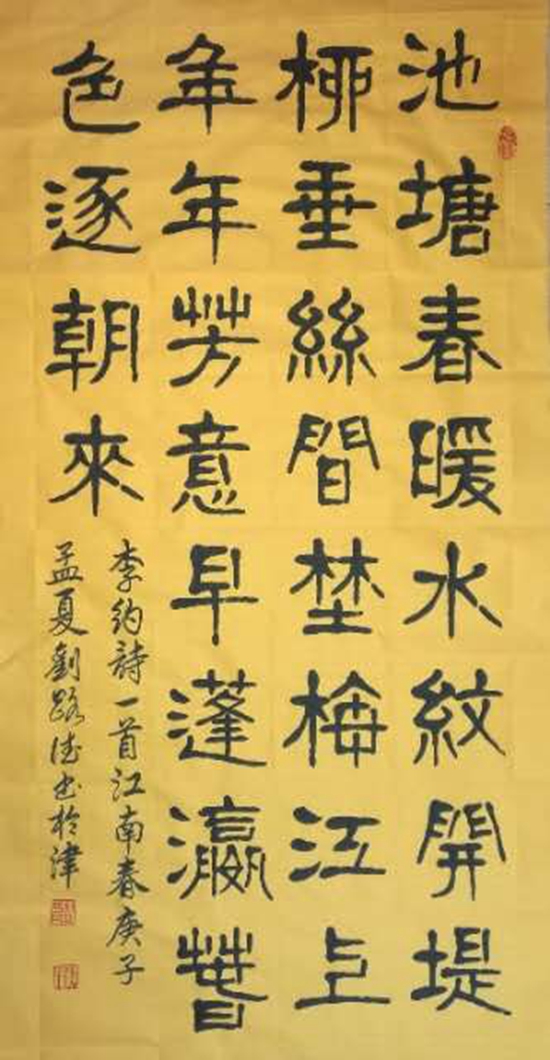 池塘春暖水紋開堤
桺垂絲間埜梅江上
年年芳意早蓬瀛萅
色逐朝來
李約詩一首江南春庚子
孟夏劉路德书於津